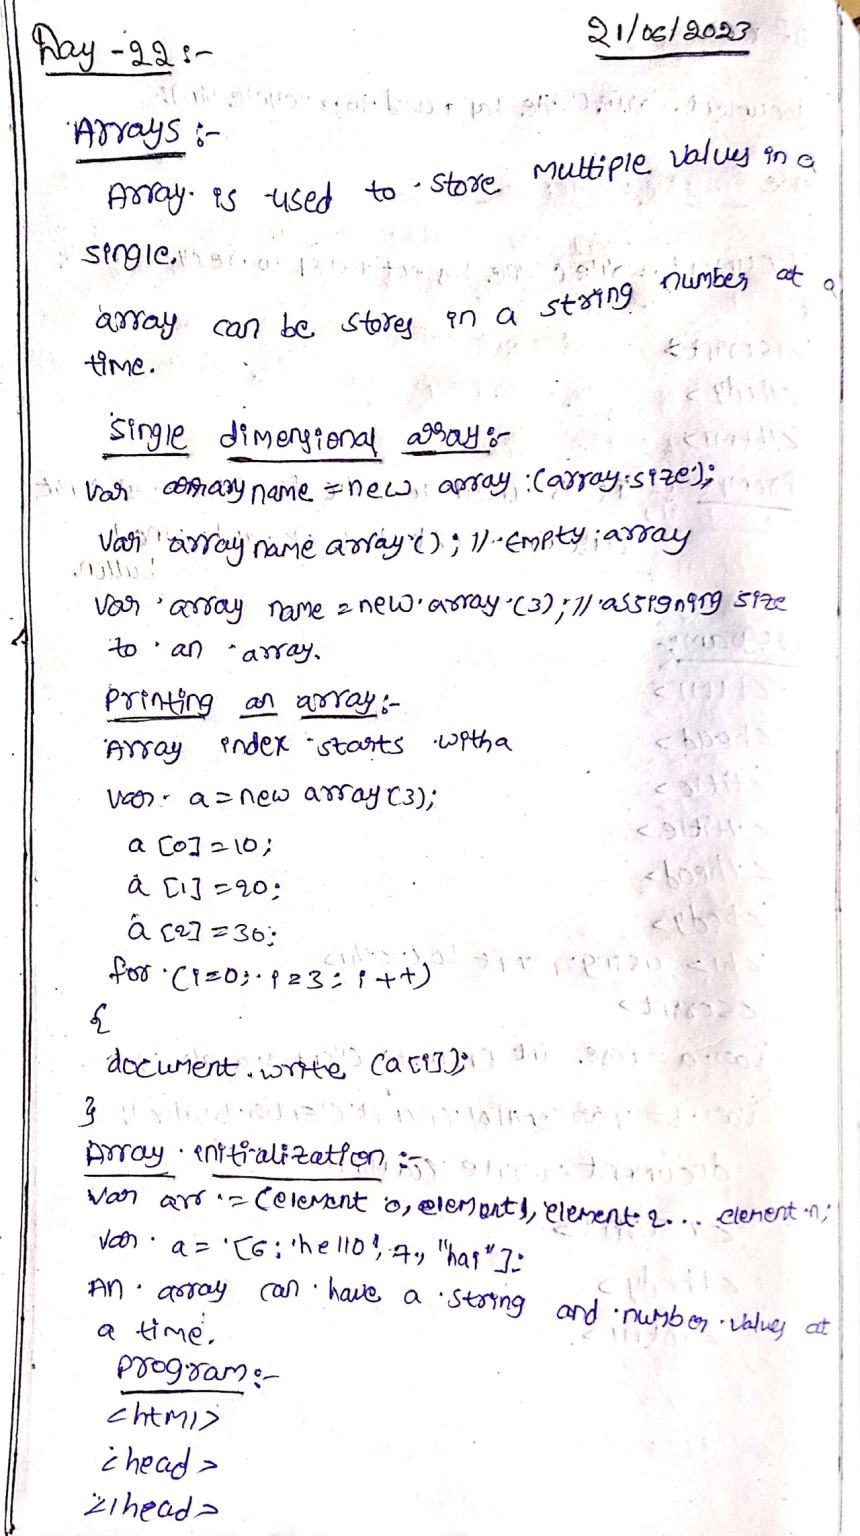 Day - 22 :-
21/06/2023
Arrays :-
Array is used to store multiple values in a
single.
array can be stores in a string number at a
time.
Single dimensional array :-
var array name = new array (array size);
var array name array (); // Empty array
var array name = new array (3); // assigning size
to an array.
Printing an array :-
Array index starts witha
var a = new array (3);
a [0] = 10;
a [1] = 20;
a [2] = 30;
for (i=0; i<3; i++)
{
document.write (a[i]);
}
Array initialization :-
Var arr = (element 0, element1, element 2... element n;
Var a = [6; 'hello', 7, "hai"];
An array can have a string and number values at
a time.
Program :-
<html>
<head>
</head>